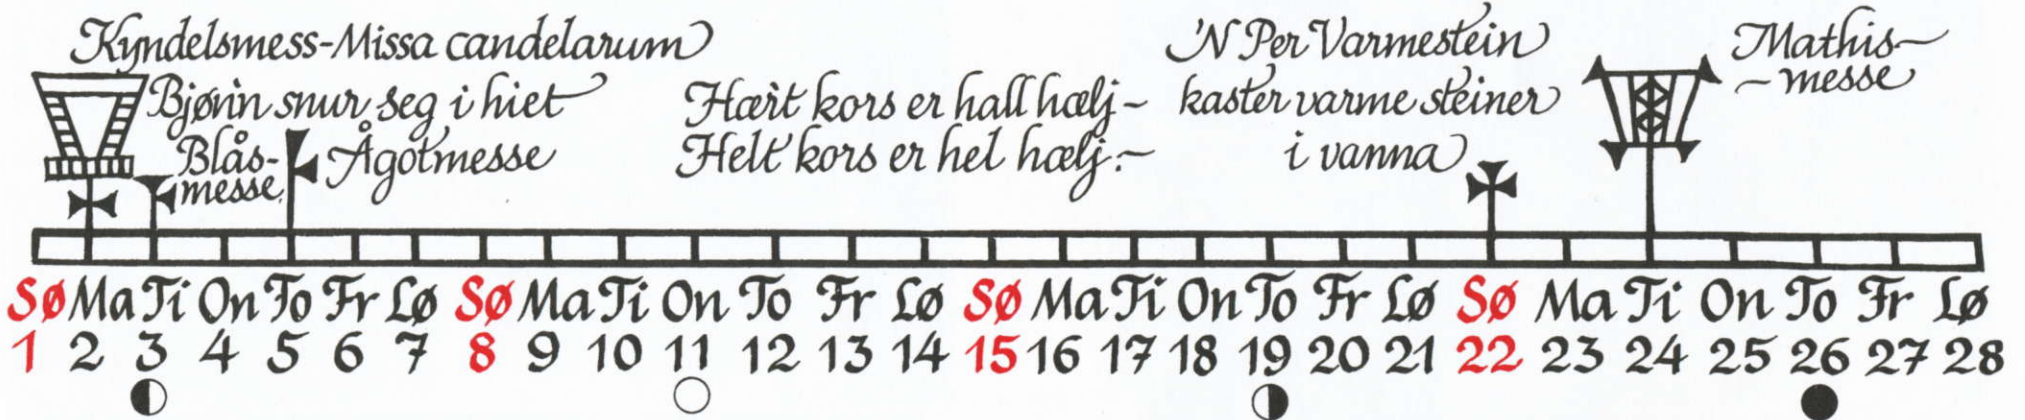 Kyndelsmess-Missa candelarum
Bjønn snur seg i hiet
Blås-
messe
Ågotmesse
Hært kors er hall hælj~
Helt kors er hel hælj.~
'N Per Varmestein
kaster varme steiner
i vanna
Mathis~
~messe
Sø Ma Ti On To Fr Lø Sø Ma Ti On To Fr Lø Sø Ma Ti On To Fr Lø Sø Ma Ti On To Fr Lø
1 2 3 4 5 6 7 8 9 10 11 12 13 14 15 16 17 18 19 20 21 22 23 24 25 26 27 28